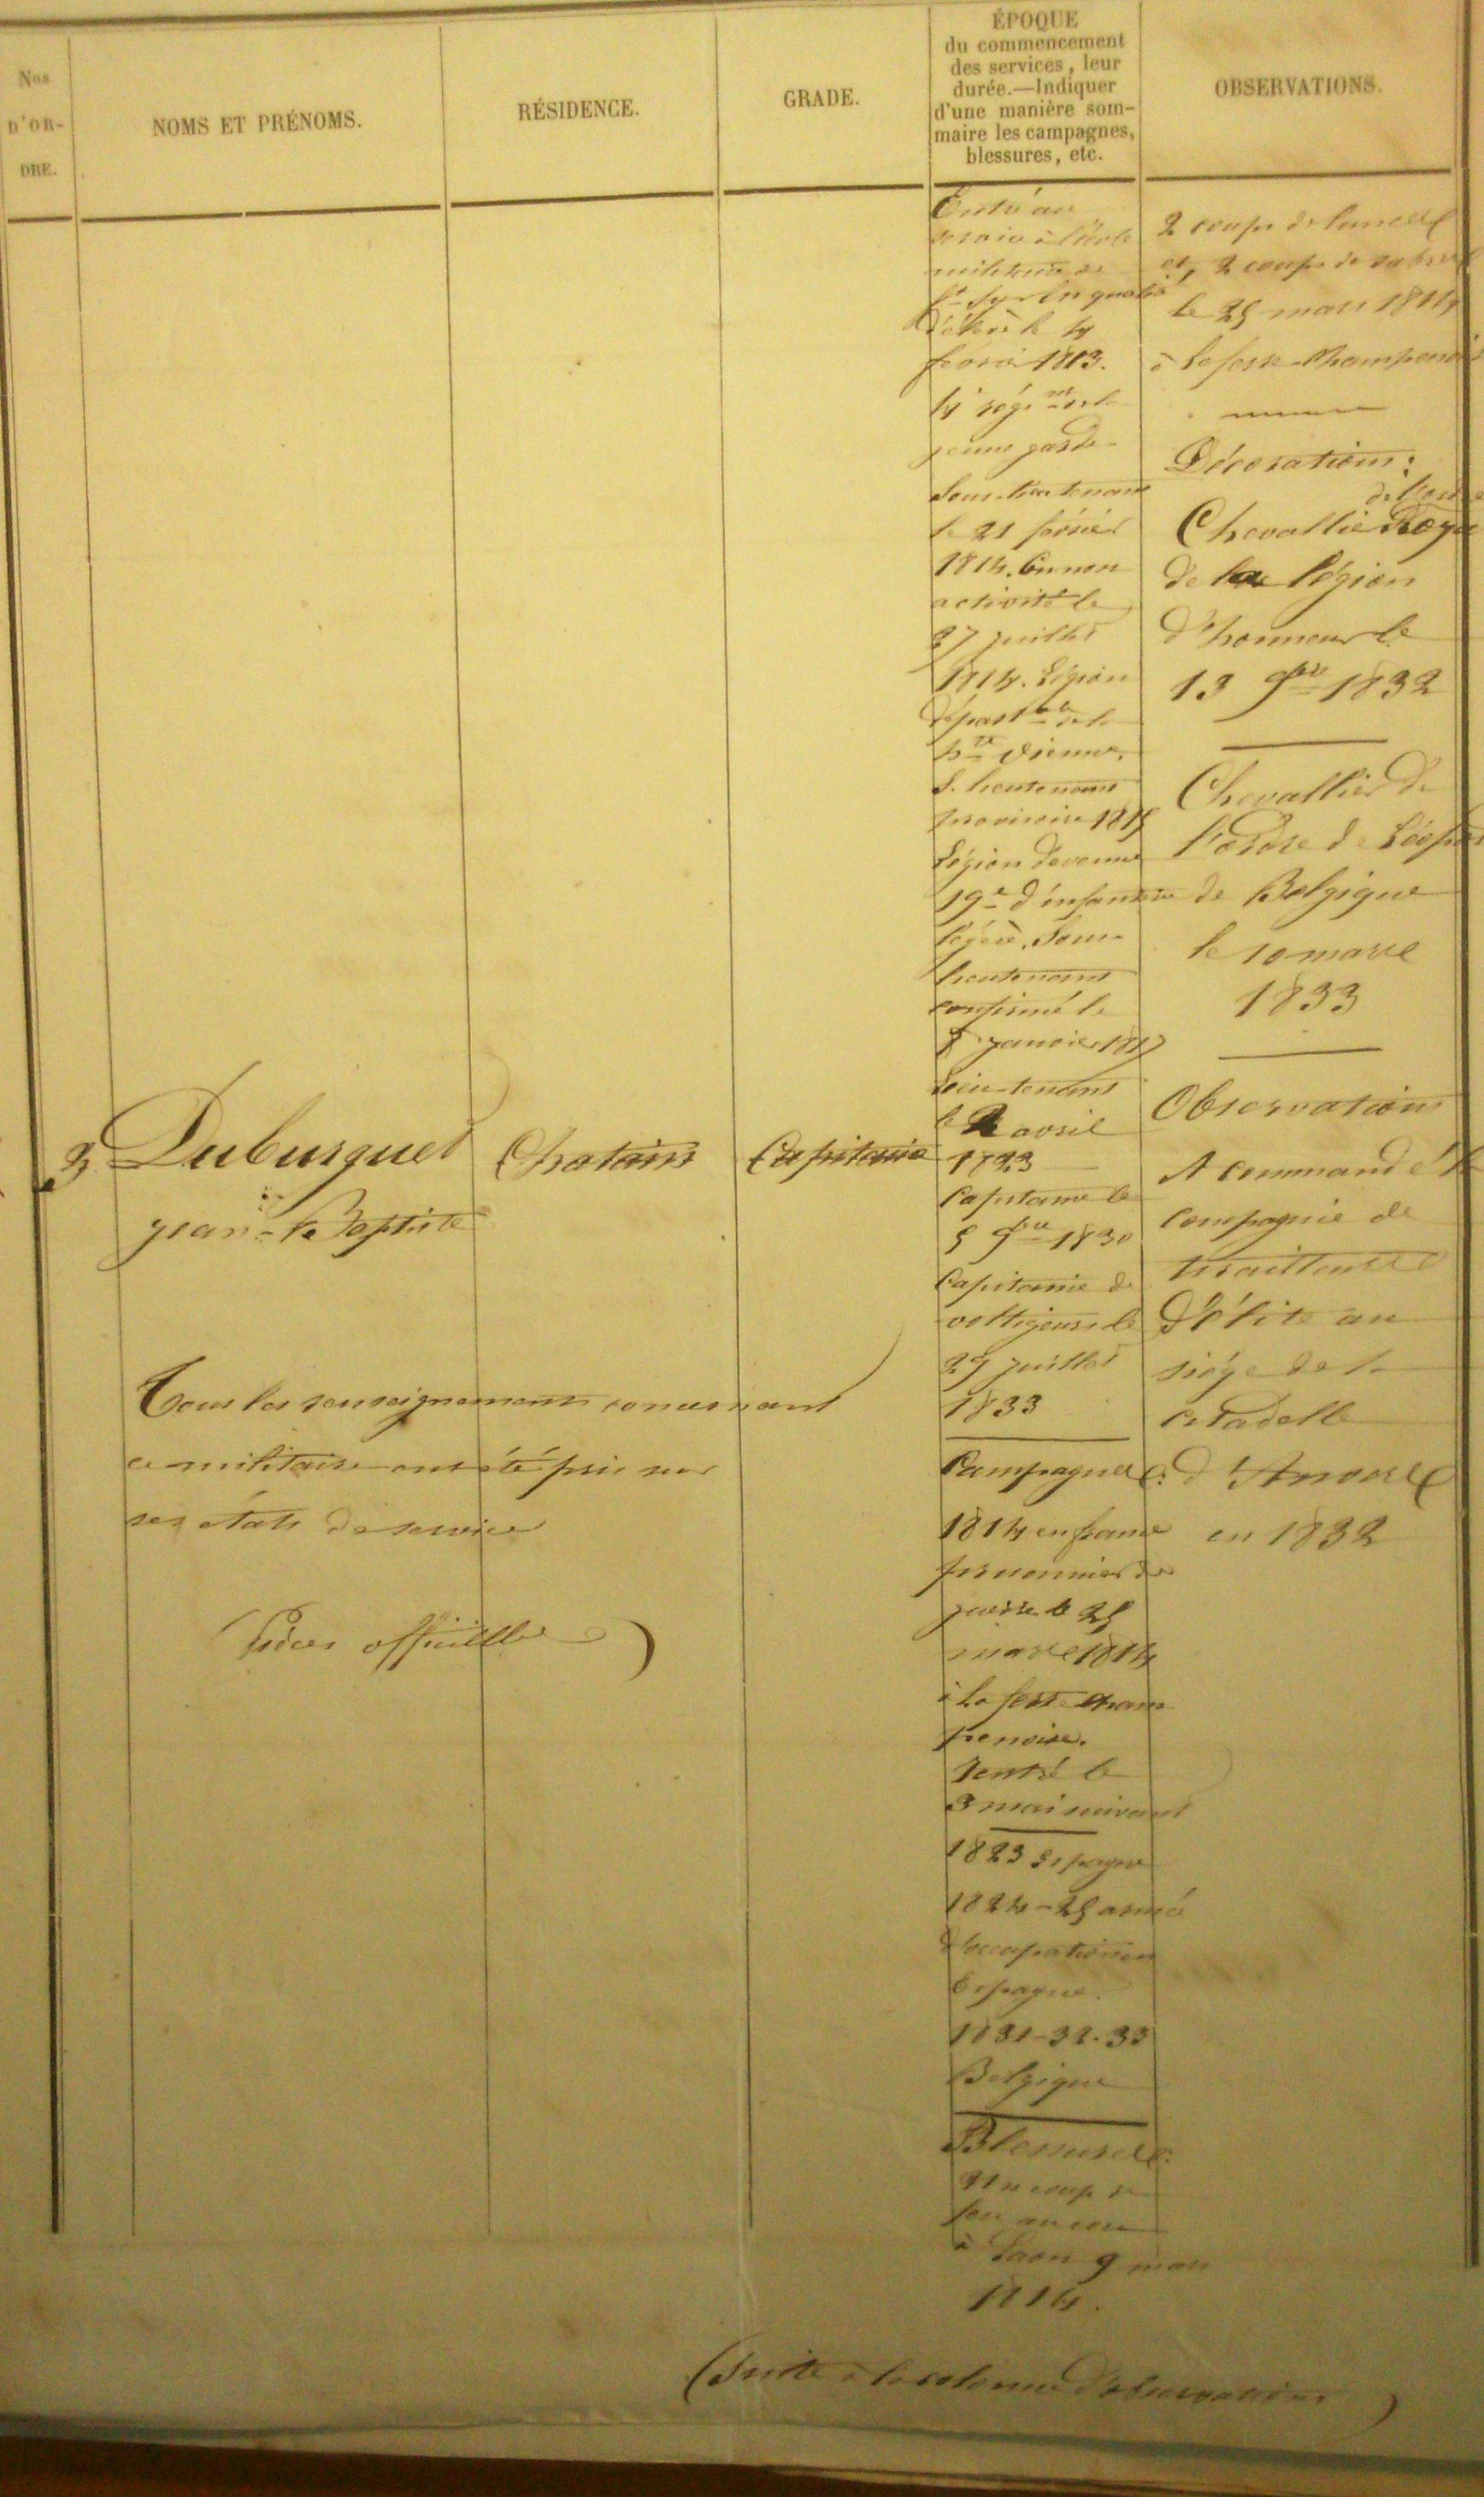 Nos
D'OR-
DRE.
NOMS ET PRÉNOMS.
RÉSIDENCE.
GRADE.
ÉPOQUE
du commencement
des services, leur
durée.—Indiquer
d'une manière som-
maire les campagnes,
blessures, etc.
OBSERVATIONS.
3 Duburguet
jean-Baptiste
Chatain
Capitaine
Tous les renseignements concernant
ce militaire ont été pris sur
ses états de service
Pièces officielles )
Entré au
service à l'école
militaire de
St Cyr en qualité
d'élève le 4
fevrier 1813.
4e régi.mt de la
jeune garde
Sous-lieutenant
le 21 février
1814. En non
activité le
27 juillet
1814. Légion
départ.le de la
hte vienne.
S. lieutenant
provisoire 1815
Légion devenue
19e d'infanterie
légère. Sous-
lieutenant
confirmé le
8 janvier 1817
Lieutenant
le 2 avril
1823
Capitaine le
5 9bre 1830
Capitaine de
voltigeurs le
29 juillet
1833
Campagnes:
1814 en france
prisonnier de
guerre le 25
mars 1814
à la fère cham
penoise.
rentré le
3 mai suivant
1823 Espagne
1824-25 armée
d'occupation en
Espagne.
1831-32-33
Belgique
Blessures:
Un coup de
feu au cou
à Laon 9 mars
1814.
(Suite à la colonne d'observations )
2 coups de lances
et, 2 coups de sabre
le 25 mars 1814
à la fère-Champenoise
Décorations:
de l'ordre
Chevallier Royal
de la légion
d'honneur le
13 9bre 1832
Chevallier de
l'ordre de Léopold
de Belgique
le 10 mars
1833
Observations
A commandé la
compagnie de
tirailleurs
d'élite au
siége de la
citadelle
d'Anvers
en 1832